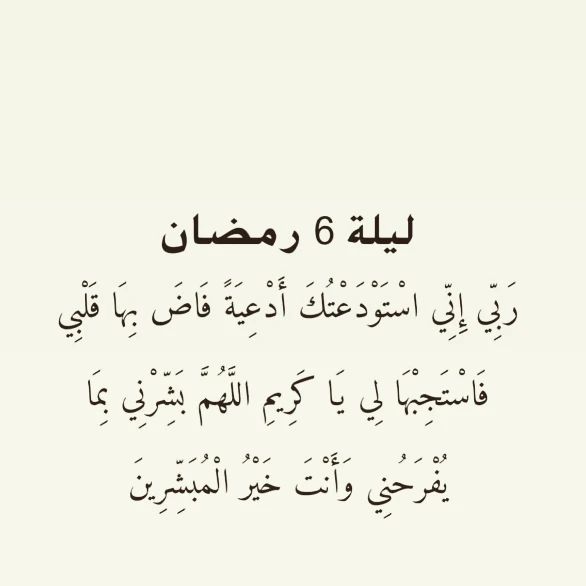 ليلة 6 رمضان
رَبّي إِنّي اسْتَوْدَعْتُكَ أَدْعِيَةً فَاضَ بِهَا قَلْبِي
فَاسْتَجِبْهَا لِي يَا كَرِيمِ اللَّهُمَّ بَشّرْنِي بِمَا
يُفْرَحُنِي وَأَنْتَ خَيْرُ الْمُبَشّرِينَ